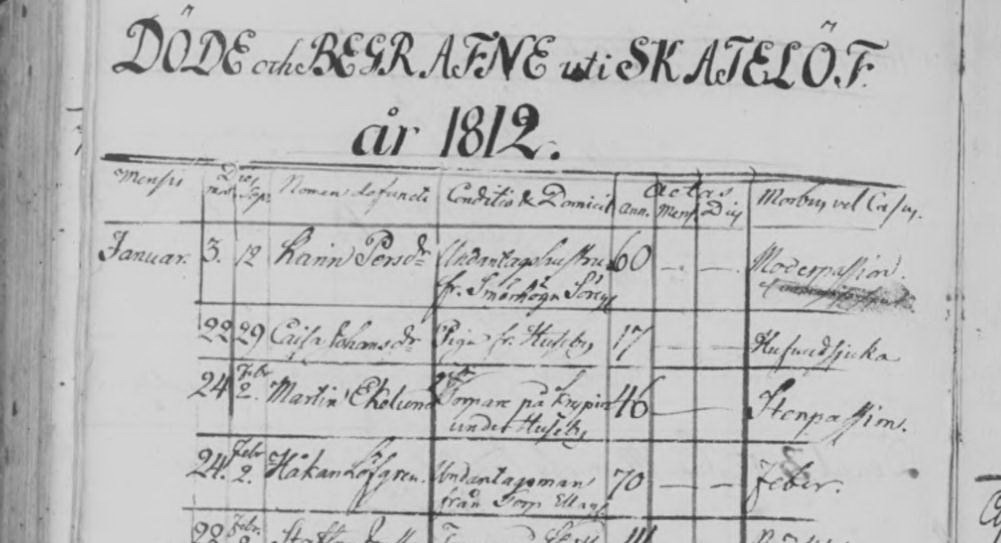 DÖDE och BEGRAFNE uti SKATELÖF.
år 1812.
Mensis Dies Nomen defuncti Conditio & Domicil Aetas Morbus vel Casus.
mort. Sep. Ann. Mens. Dies
Januar. 3. 12 Karin Persdr Undantagshustru 60 — — Moderpassion.
fr. Småhögn
22 29 Caisa Johansdr Piga fr. Huseby 17 — — Hufwudsjuka
24 Febr. 2. Martin Ekelund Torpare på Krypin 46 — Stenpassion.
under Huseby
24. Febr. 2. Håkan Löfgren. Undantagsman 70 — — Feber.
från Torp
Febr.